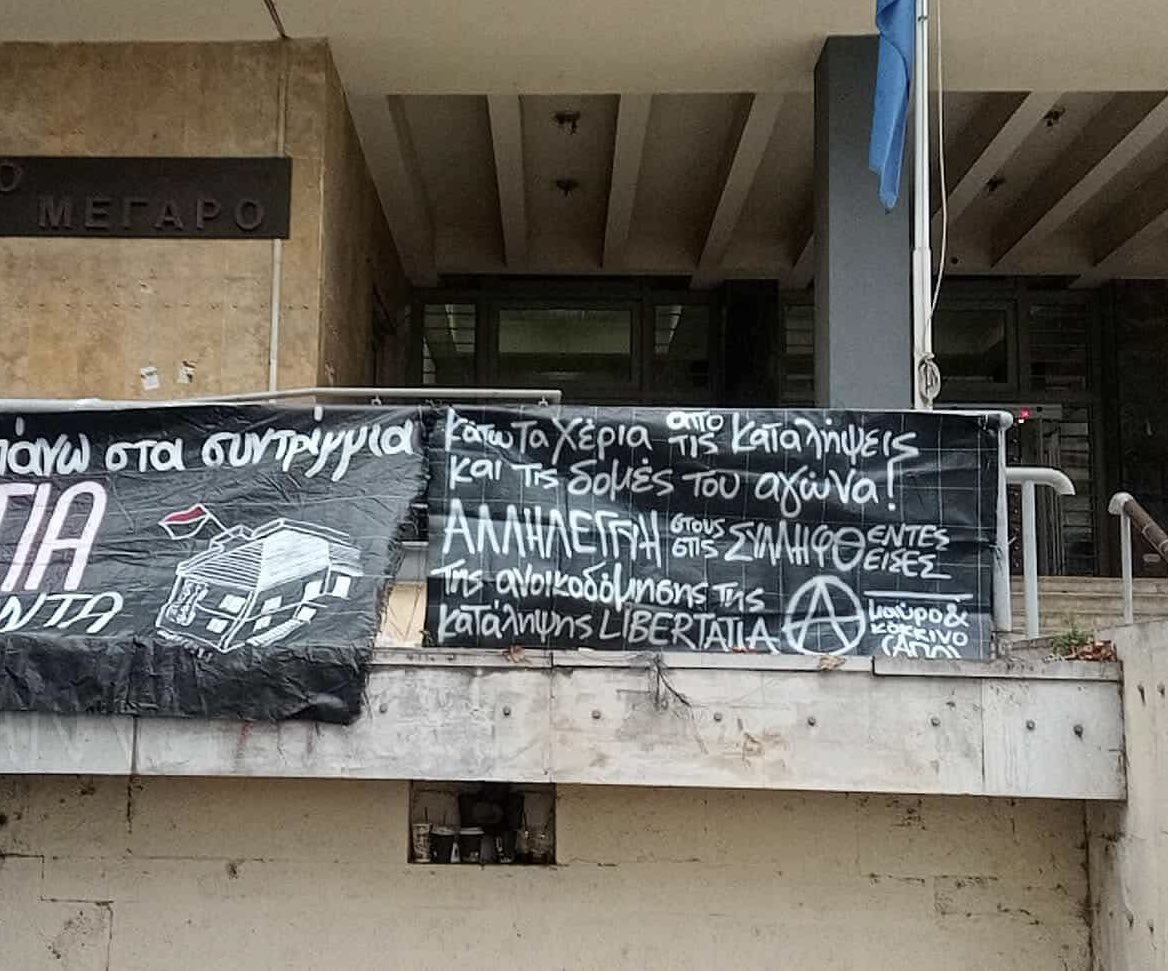 ΜΕΓΑΡΟ
πάνω στα συντρίμμια
ΤΙΑ
ΝΤΑ
κάτω τα χέρια από τις καταλήψεις
και τις δομές του αγώνα!
ΑΛΛΗΛΕΓΓΥΗ στους στις ΣΥΛΛΗΦΘΕΝΤΕΣ ΕΙΣΕΣ
της ανοικοδόμησης της
κατάληψης LIBERTATIA
μαύρο &
κόκκινο
(ΑΠΟ)